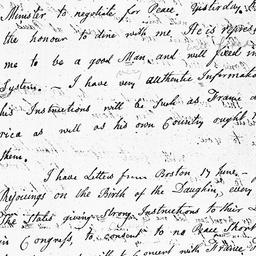 Minister to negotiate for Peace, Yesterday,
the honour to dine with me. He is repres
me to be a good Man, and well fixed in
System. — I have very authentic Informatio
his Instructions will be such as France a
rica as well as his own Country ought
them.
I have Letters from Boston 17 June —
Rejoicings on the Birth of the Dauphin, every
The States giving strong Instructions to their
in Congress, to consent to no Peace short
Concert with France